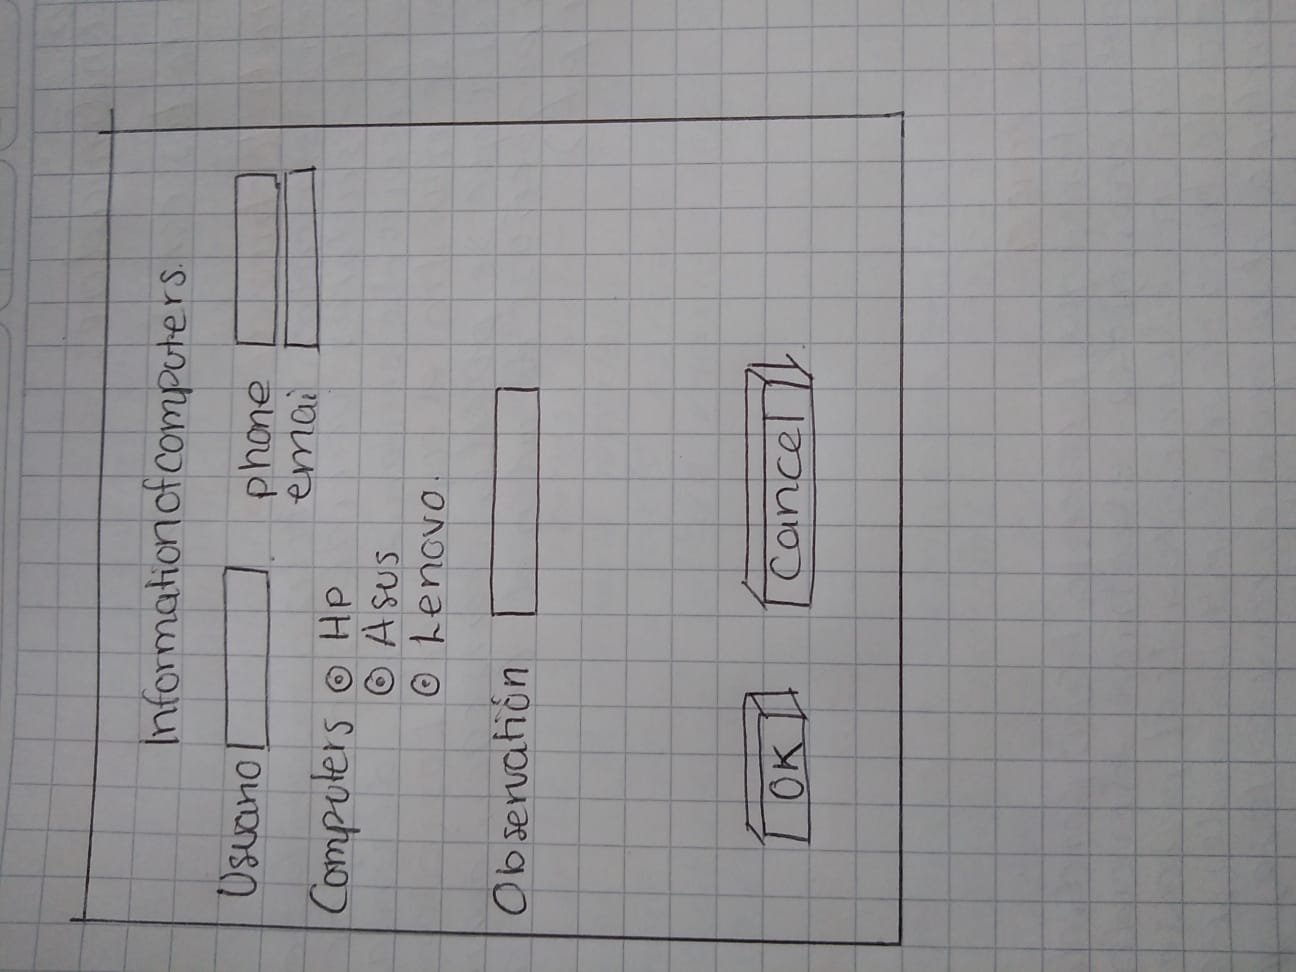 Information of computers.
Usuario
phone
emai
Computers HP
Asus
Lenovo.
Observatión
OK Cancel